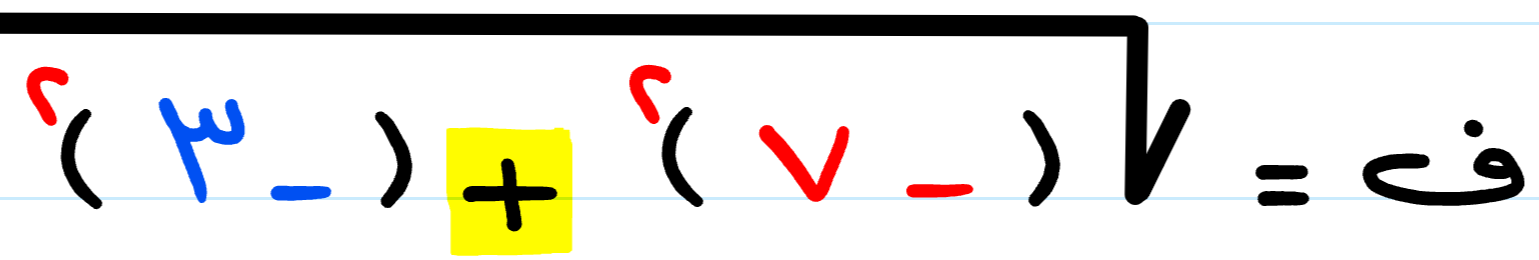 ف = √(-٧)٢ + (-٣)٢